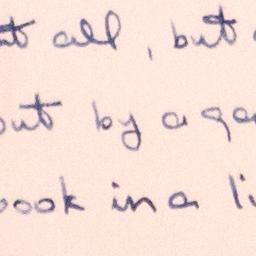 at all, but
out by a ga
book in a li